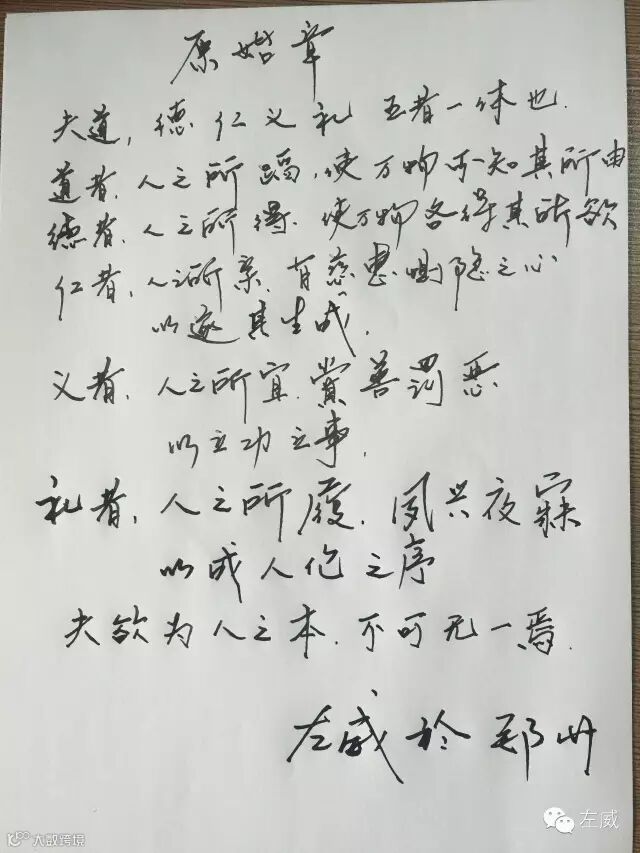 原婚章
夫道,德仁义礼 五者一体也.
道者,人之所蹈,使万物不知其所由
德者,人之所得.使万物各得其所欲
仁者,人之所亲,有慈惠恻隐之心
以遂其生成,
义者,人之所宜.赏善罚恶
以立功立事,
礼者,人之所履,夙兴夜寐
以成人伦之序
夫欲为人之本.不可无一焉.
左威於郑州
左威
大数跨境